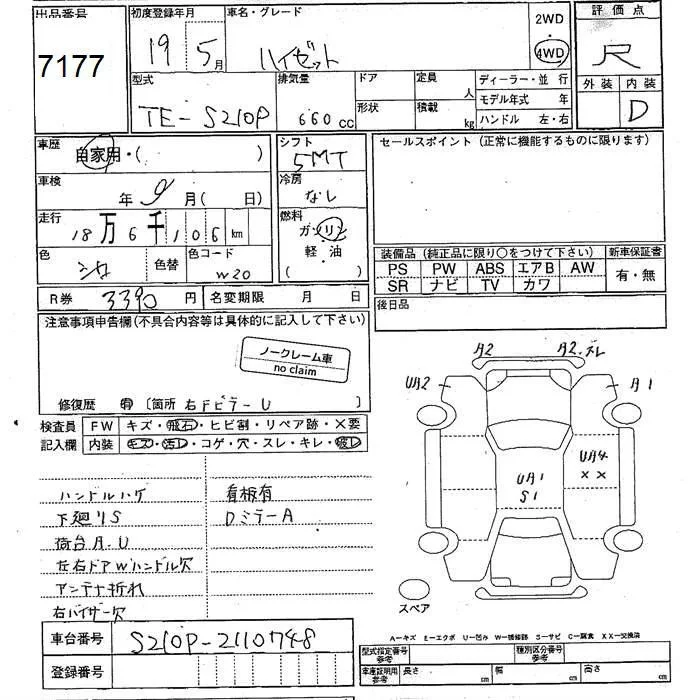 出品番号
7177
初度登録年月
19 5月
車名・グレード
ハイゼット
2WD
・
4WD
評価点
R
外装 内装
D
型式
TE-S210P
排気量
660cc
ドア
形状
定員
人
積載
kg
ディーラー・並 行
モデル年式 年
ハンドル 左・右
車歴
自家用・( )
シフト
5MT
セールスポイント (正常に機能するものに限ります)
車検
年 9月( 日)
冷房
なし
走行
18万6千106km
燃料
ガソリン
軽・油
( )
色
シロ
色替
色コード
W20
装備品 (純正品に限り○をつけて下さい)
新車保証書
PS PW ABS エアB AW
SR ナビ TV カワ
有・無
R券 3390円
名変期限 月 日
後日品
注意事項申告欄(不具合内容等は具体的に記入して下さい)
ノークレーム車
no claim
修復歴 有 〔箇所 右Fピラー U 〕
検査員
記入欄
FW キズ・飛石・ヒビ割・リペア跡・×要
内装 キズ・汚レ・コゲ・穴・スレ・キレ・破レ
ハンドルハゲ
下廻りS
荷台A.U
左右ドアWハンドル欠
アンテナ折れ
右バイザー欠
看板有
DミラーA
A2
A2.ズレ
UA2
A1
UA4
××
UA1
S1
スペア
車台番号 S210P-2110748
登録番号
A-キズ E-エクボ U-凹み W-補修跡 S-サビ C-腐食 XX-交換済
型式指定番号
参考
種別区分番号
参考
車庫証明用
参考
長さ cm
幅 cm
高さ cm